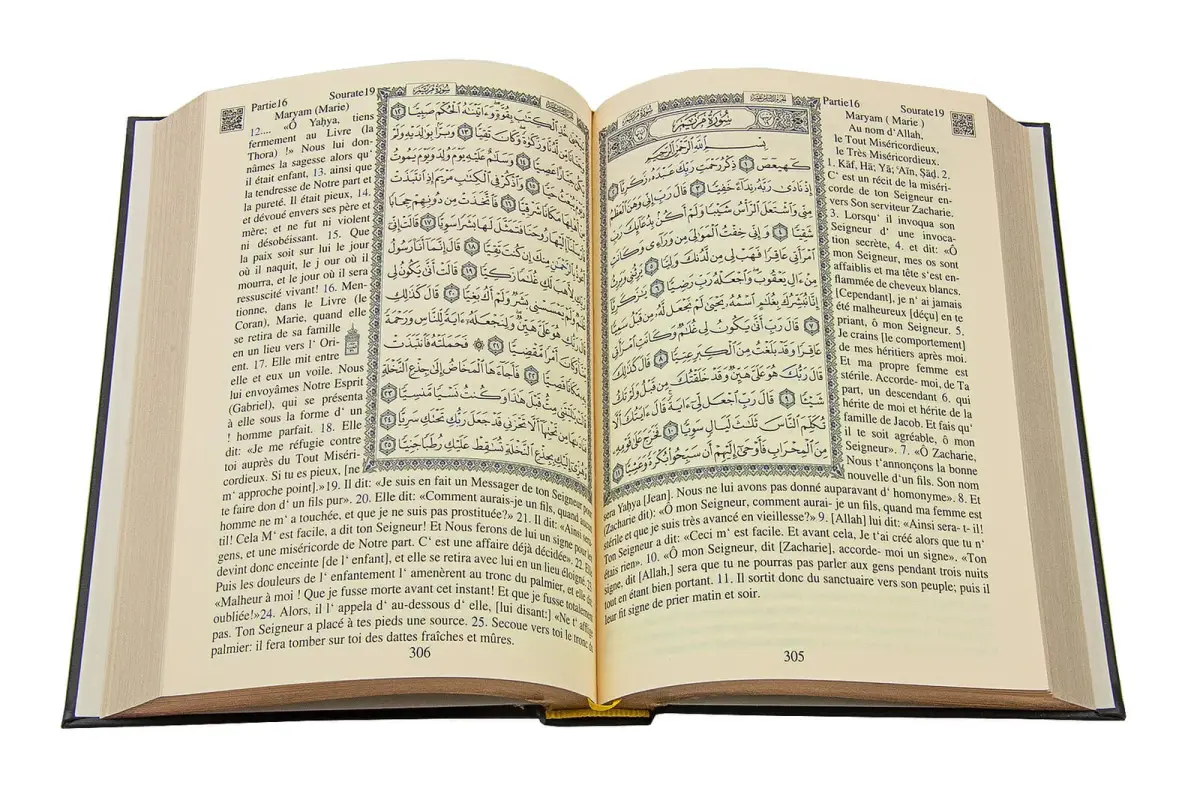 Partie16 Sourate19
Maryam ( Marie )
سُورَةُ مَرْيَمَ
بِسْمِ اللَّهِ الرَّحْمَٰنِ الرَّحِيمِ
كٓهيعٓصٓ ١ ذِكْرُ رَحْمَتِ رَبِّكَ عَبْدَهُۥ زَكَرِيَّآ ٢
إِذْ نَادَىٰ رَبَّهُۥ نِدَآءً خَفِيًّا ٣ قَالَ رَبِّ إِنِّي وَهَنَ ٱلْعَظْمُ
مِنِّي وَٱشْتَعَلَ ٱلرَّأْسُ شَيْبًا وَلَمْ أَكُنۢ بِدُعَآئِكَ رَبِّ
شَقِيًّا ٤ وَإِنِّي خِفْتُ ٱلْمَوَٰلِيَ مِن وَرَآءِي وَكَانَتِ
ٱمْرَأَتِي عَاقِرًا فَهَبْ لِي مِن لَّدُنكَ وَلِيًّا ٥ يَرِثُنِي وَيَرِثُ
مِنْ ءَالِ يَعْقُوبَ وَٱجْعَلْهُ رَبِّ رَضِيًّا ٦ يَٰزَكَرِيَّآ
إِنَّا نُبَشِّرُكَ بِغُلَٰمٍ ٱسْمُهُۥ يَحْيَىٰ لَمْ نَجْعَل لَّهُۥ مِن قَبْلُ سَمِيًّا
٧ قَالَ رَبِّ أَنَّىٰ يَكُونُ لِي غُلَٰمٌ وَكَانَتِ ٱمْرَأَتِي
عَاقِرًا وَقَدْ بَلَغْتُ مِنَ ٱلْكِبَرِ عِتِيًّا ٨ قَالَ كَذَٰلِكَ
قَالَ رَبُّكَ هُوَ عَلَيَّ هَيِّنٌ وَقَدْ خَلَقْتُكَ مِن قَبْلُ وَلَمْ تَكُ
شَيْـًٔا ٩ قَالَ رَبِّ ٱجْعَل لِّيٓ ءَايَةً قَالَ ءَايَتُكَ أَلَّا
تُكَلِّمَ ٱلنَّاسَ ثَلَٰثَ لَيَالٍ سَوِيًّا ١٠ فَخَرَجَ عَلَىٰ قَوْمِهِۦ
مِنَ ٱلْمِحْرَابِ فَأَوْحَىٰٓ إِلَيْهِمْ أَن سَبِّحُوا۟ بُكْرَةً وَعَشِيًّا ١١
Au nom d'Allah,
le Tout Miséricordieux,
le Très Miséricordieux.
1. Kāf, Hā; Yā; ‘Aīn, Ṣād. 2.
C‘ est un récit de la miséri-
corde de ton Seigneur en-
vers Son serviteur Zacharie.
3. Lorsqu‘ il invoqua son
Seigneur d‘ une invoca-
tion secrète, 4. et dit: «Ô
mon Seigneur, mes os sont
affaiblis et ma tête s‘est en-
flammée de cheveux blancs.
[Cependant], je n‘ ai jamais
été malheureux [déçu] en te
priant, ô mon Seigneur. 5.
Je crains [le comportement]
de mes héritiers après moi.
Et ma propre femme est
stérile. Accorde- moi, de Ta
part, un descendant 6. qui
hérite de moi et hérite de la
famille de Jacob. Et fais qu‘
il te soit agréable, ô mon
Seigneur». 7. «Ô Zacharie,
Nous t‘annonçons la bonne
nouvelle d‘un fils. Son nom
sera Yaḥya [Jean]. Nous ne lui avons pas donné auparavant d‘ homonyme». 8. Et
(Zacharie dit): «Ô mon Seigneur, comment aurai- je un fils, quand ma femme est
stérile et que je suis très avancé en vieillesse?» 9. [Allah] lui dit: «Ainsi sera- t- il!
Ton Seigneur a dit: «Ceci m‘ est facile. Et avant cela, Je t‘ai créé alors que tu n‘
étais rien». 10. «Ô mon Seigneur, dit [Zacharie], accorde- moi un signe». «Ton
signe, dit [Allah,] sera que tu ne pourras pas parler aux gens pendant trois nuits
tout en étant bien portant. 11. Il sortit donc du sanctuaire vers son peuple; puis il
leur fit signe de prier matin et soir.
305
Partie16 Sourate19
Maryam (Marie)
سُورَةُ مَرْيَمَ
خُذِ ٱلْكِتَٰبَ بِقُوَّةٍ وَءَاتَيْنَٰهُ ٱلْحُكْمَ صَبِيًّا ١٢
مِّن لَّدُنَّا وَزَكَوٰةً وَكَانَ تَقِيًّا ١٣ وَبَرًّۢا بِوَٰلِدَيْهِ وَلَمْ
عَصِيًّا ١٤ وَسَلَٰمٌ عَلَيْهِ يَوْمَ وُلِدَ وَيَوْمَ يَمُوتُ
١٥ وَٱذْكُرْ فِي ٱلْكِتَٰبِ مَرْيَمَ إِذِ ٱنتَبَذَتْ
أَهْلِهَا مَكَانًا شَرْقِيًّا ١٦ فَٱتَّخَذَتْ مِن دُونِهِمْ حِجَابًا
إِلَيْهَا رُوحَنَا فَتَمَثَّلَ لَهَا بَشَرًا سَوِيًّا ١٧ قَالَتْ إِنِّيٓ
بِٱلرَّحْمَٰنِ مِنكَ إِن كُنتَ تَقِيًّا ١٨ قَالَ إِنَّمَآ أَنَا۠ رَسُولُ
رَبِّكِ لِأَهَبَ لَكِ غُلَٰمًا زَكِيًّا ١٩ قَالَتْ أَنَّىٰ يَكُونُ لِي
وَلَمْ يَمْسَسْنِي بَشَرٌ وَلَمْ أَكُ بَغِيًّا ٢٠ قَالَ كَذَٰلِكِ
هُوَ عَلَيَّ هَيِّنٌ وَلِنَجْعَلَهُۥٓ ءَايَةً لِّلنَّاسِ وَرَحْمَةً
وَكَانَ أَمْرًا مَّقْضِيًّا ٢١ فَحَمَلَتْهُ فَٱنتَبَذَتْ
مَكَانًا قَصِيًّا ٢٢ فَأَجَآءَهَا ٱلْمَخَاضُ إِلَىٰ جِذْعِ ٱلنَّخْلَةِ
يَٰلَيْتَنِي مِتُّ قَبْلَ هَٰذَا وَكُنتُ نَسْيًا مَّنسِيًّا ٢٣
مِن تَحْتِهَآ أَلَّا تَحْزَنِي قَدْ جَعَلَ رَبُّكِ تَحْتَكِ سَرِيًّا ٢٤
وَهُزِّيٓ إِلَيْكِ بِجِذْعِ ٱلنَّخْلَةِ تُسَٰقِطْ عَلَيْكِ رُطَبًا جَنِيًّا ٢٥
12.... «Ô Yaḥya, tiens
fermement au Livre (la
Thora) !» Nous lui don-
nâmes la sagesse alors qu‘
il était enfant, 13. ainsi que
la tendresse de Notre part et
la pureté. Il était pieux, 14.
et dévoué envers ses père et
mère; et ne fut ni violent
ni désobéissant. 15. Que
la paix soit sur lui le jour
où il naquit, le j our où il
mourra, et le jour où il sera
ressuscité vivant! 16. Men-
tionne, dans le Livre (le
Coran), Marie, quand elle
se retira de sa famille
en un lieu vers l‘ Ori-
ent. 17. Elle mit entre
elle et eux un voile. Nous
lui envoyâmes Notre Esprit
(Gabriel), qui se présenta
à elle sous la forme d‘ un
! homme parfait. 18. Elle
dit: «Je me réfugie contre
toi auprès du Tout Miséri-
cordieux. Si tu es pieux, [ne
m‘ approche point].»19. Il dit: «Je suis en fait un Messager de ton Seigneur pour
te faire don d‘ un fils pur». 20. Elle dit: «Comment aurais-je un fils, quand aucun
homme ne m‘ a touchée, et que je ne suis pas prostituée?» 21. Il dit: «Ainsi sera-
til! Cela M‘ est facile, a dit ton Seigneur! Et Nous ferons de lui un signe pour les
gens, et une miséricorde de Notre part. C‘ est une affaire déjà décidée». 22. Elle
devint donc enceinte [de l‘ enfant], et elle se retira avec lui en un lieu éloigné.
Puis les douleurs de l‘ enfantement l‘ amenèrent au tronc du palmier, et elle dit:
«Malheur à moi ! Que je fusse morte avant cet instant! Et que je fusse totalement
oubliée!»24. Alors, il l‘ appela d‘ au-dessous d‘ elle, [lui disant:] «Ne t‘ afflige
pas. Ton Seigneur a placé à tes pieds une source. 25. Secoue vers toi le tronc du
palmier: il fera tomber sur toi des dattes fraîches et mûres.
306